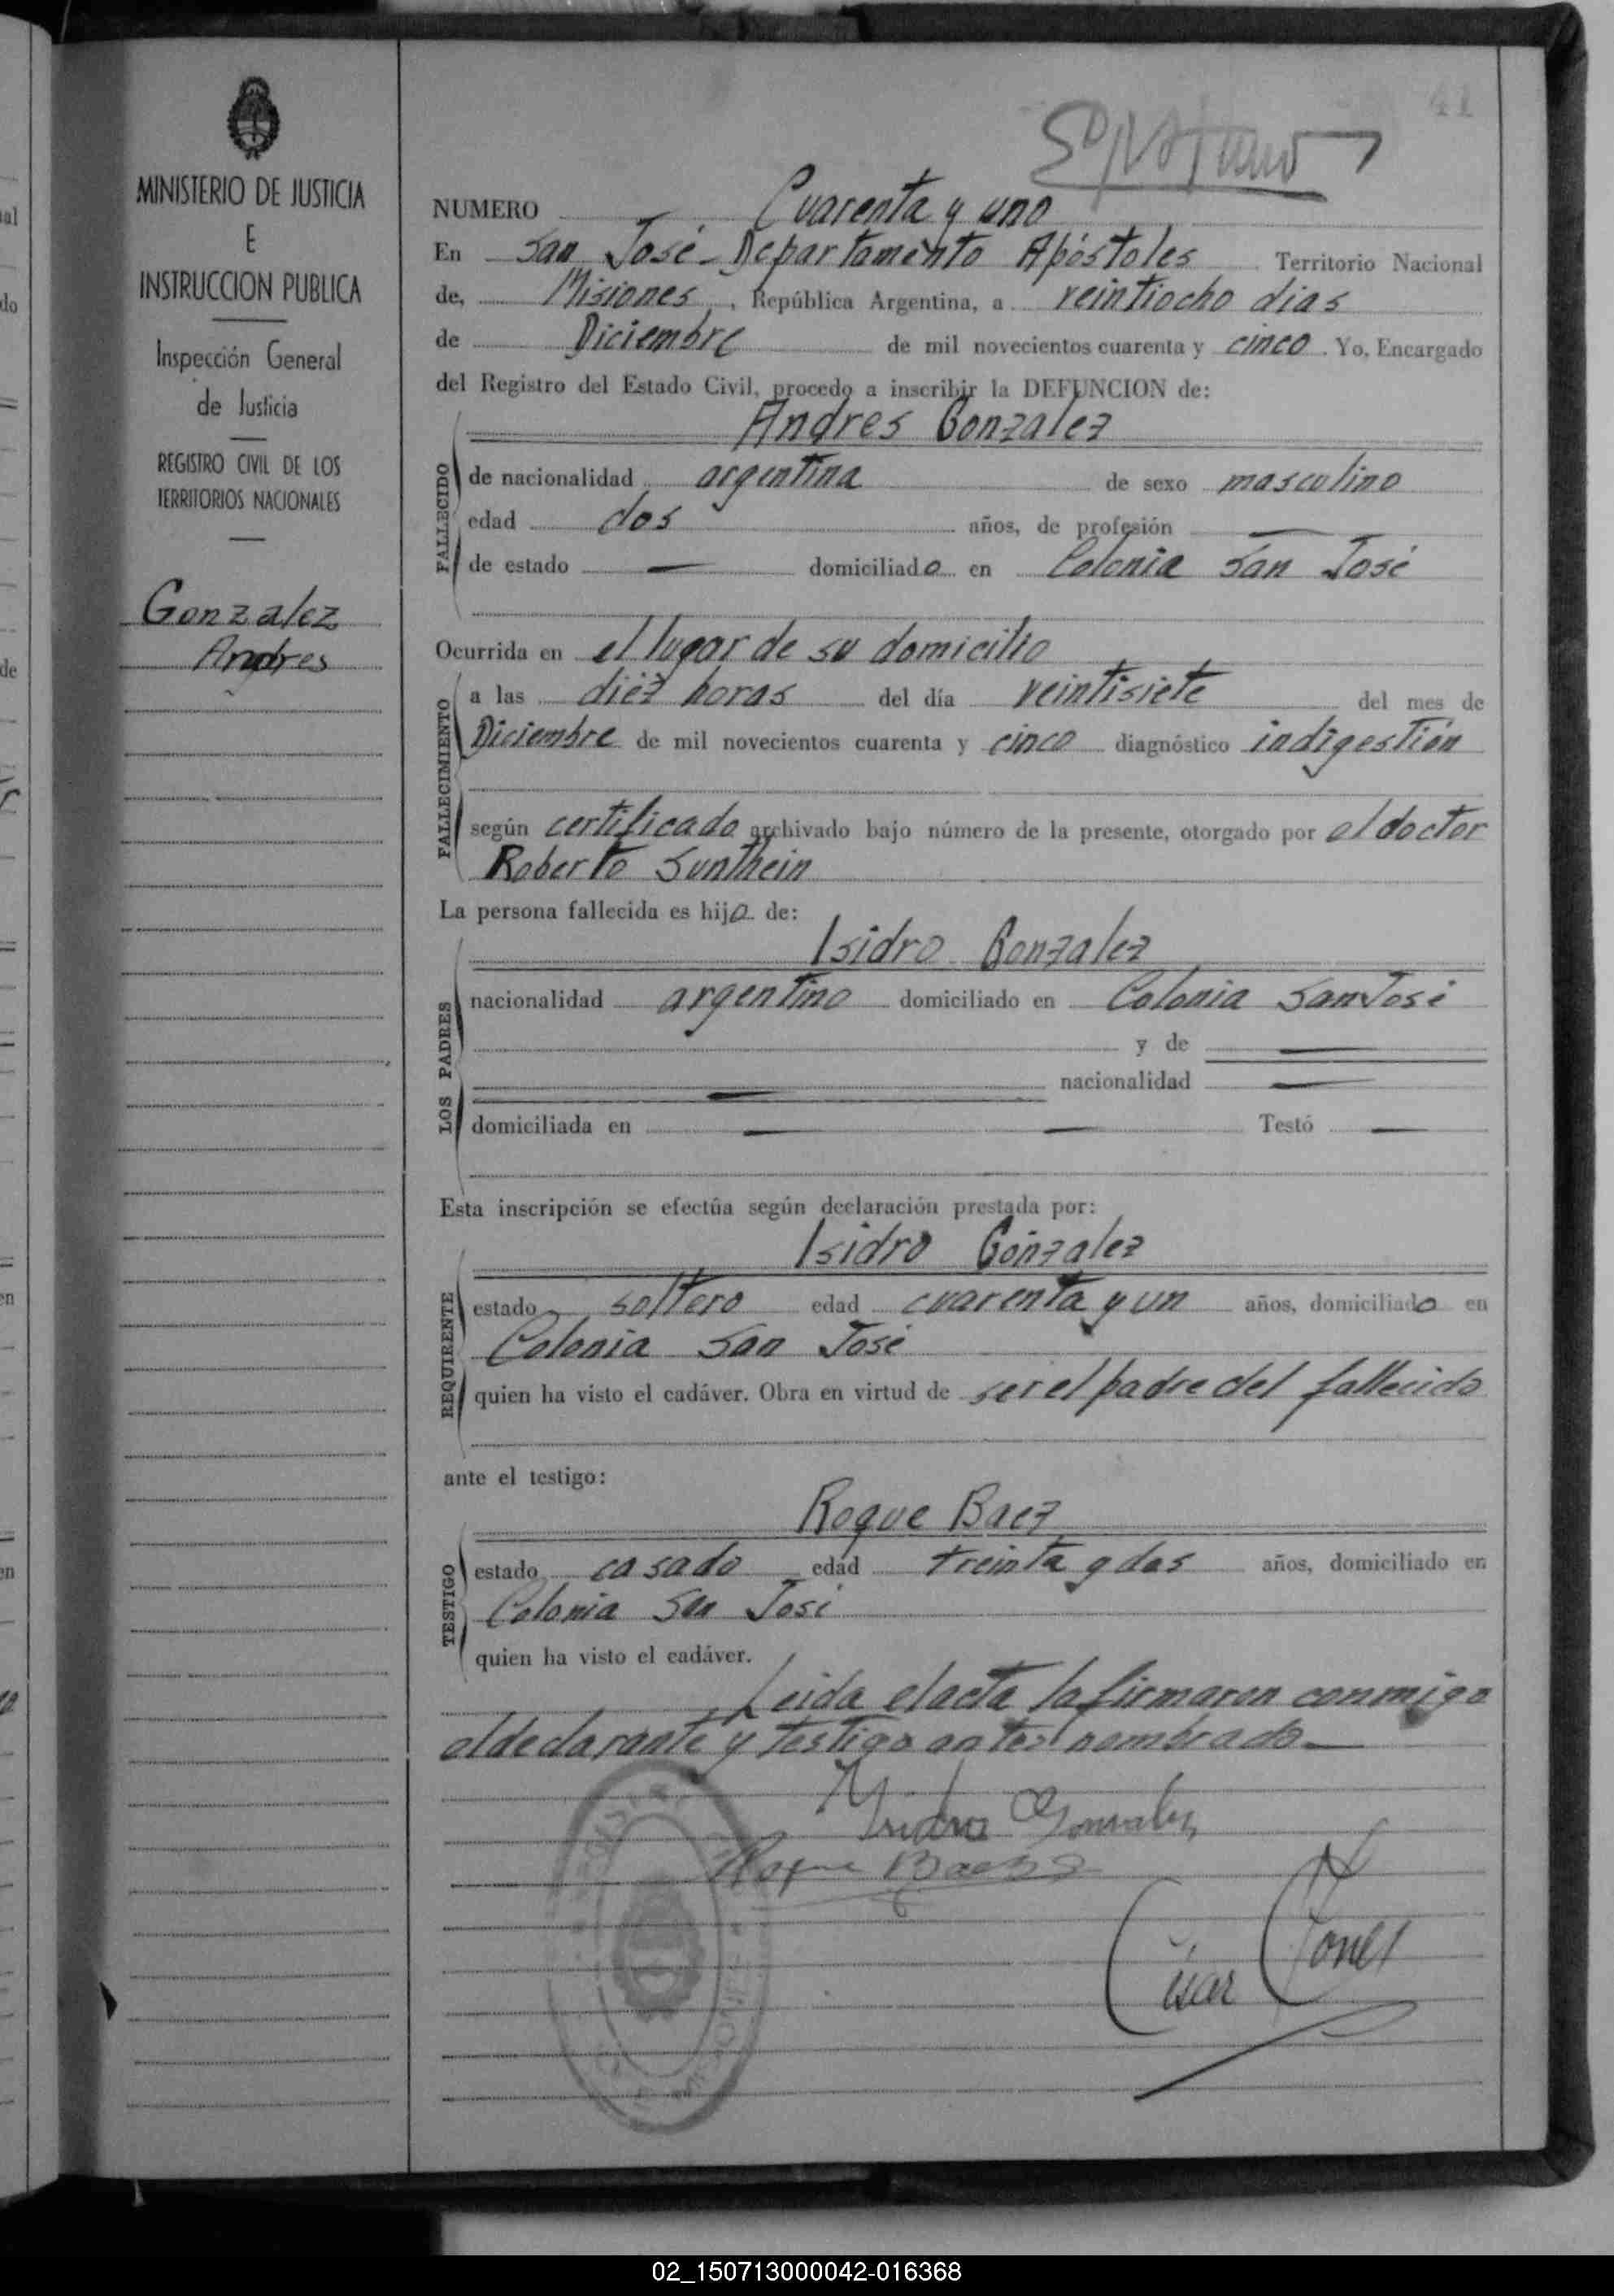 41
NUMERO Cuarenta y uno
En San José - Departamento Apóstoles Territorio Nacional
de, Misiones, República Argentina, a veintiocho dias
de Diciembre de mil novecientos cuarenta y cinco. Yo, Encargado
del Registro del Estado Civil, procedo a inscribir la DEFUNCION de:
Andres Gonzalez
FALLECIDO
de nacionalidad argentina de sexo masculino
edad dos años, de profesión —
de estado — domiciliado en Colonia San José
Ocurrida en el lugar de su domicilio
FALLECIMIENTO
a las diez horas del día veintisiete del mes de
Diciembre de mil novecientos cuarenta y cinco diagnóstico indigestión
según certificado archivado bajo número de la presente, otorgado por el doctor
Roberto Sunthein
La persona fallecida es hijo de:
Isidro Gonzalez
LOS PADRES
nacionalidad argentino domiciliado en Colonia San José
y de —
— nacionalidad —
domiciliada en — — Testó —
Esta inscripción se efectúa según declaración prestada por:
Isidro Gonzalez
REQUIRENTE
estado soltero edad cuarenta y un años, domiciliado en
Colonia San José
quien ha visto el cadáver. Obra en virtud de ser el padre del fallecido
ante el testigo:
Roque Baez
TESTIGO
estado casado edad treinta y dos años, domiciliado en
Colonia San José
quien ha visto el cadáver.
Leida el acta la firmaron conmigo
el declarante y testigo antes nombrado —
Isidro Gonzalez
Roque Baez
MINISTERIO DE JUSTICIA
E
INSTRUCCION PUBLICA
Inspección General
de Justicia
REGISTRO CIVIL DE LOS
TERRITORIOS NACIONALES
Gonzalez
Andres
02_150713000042-016368